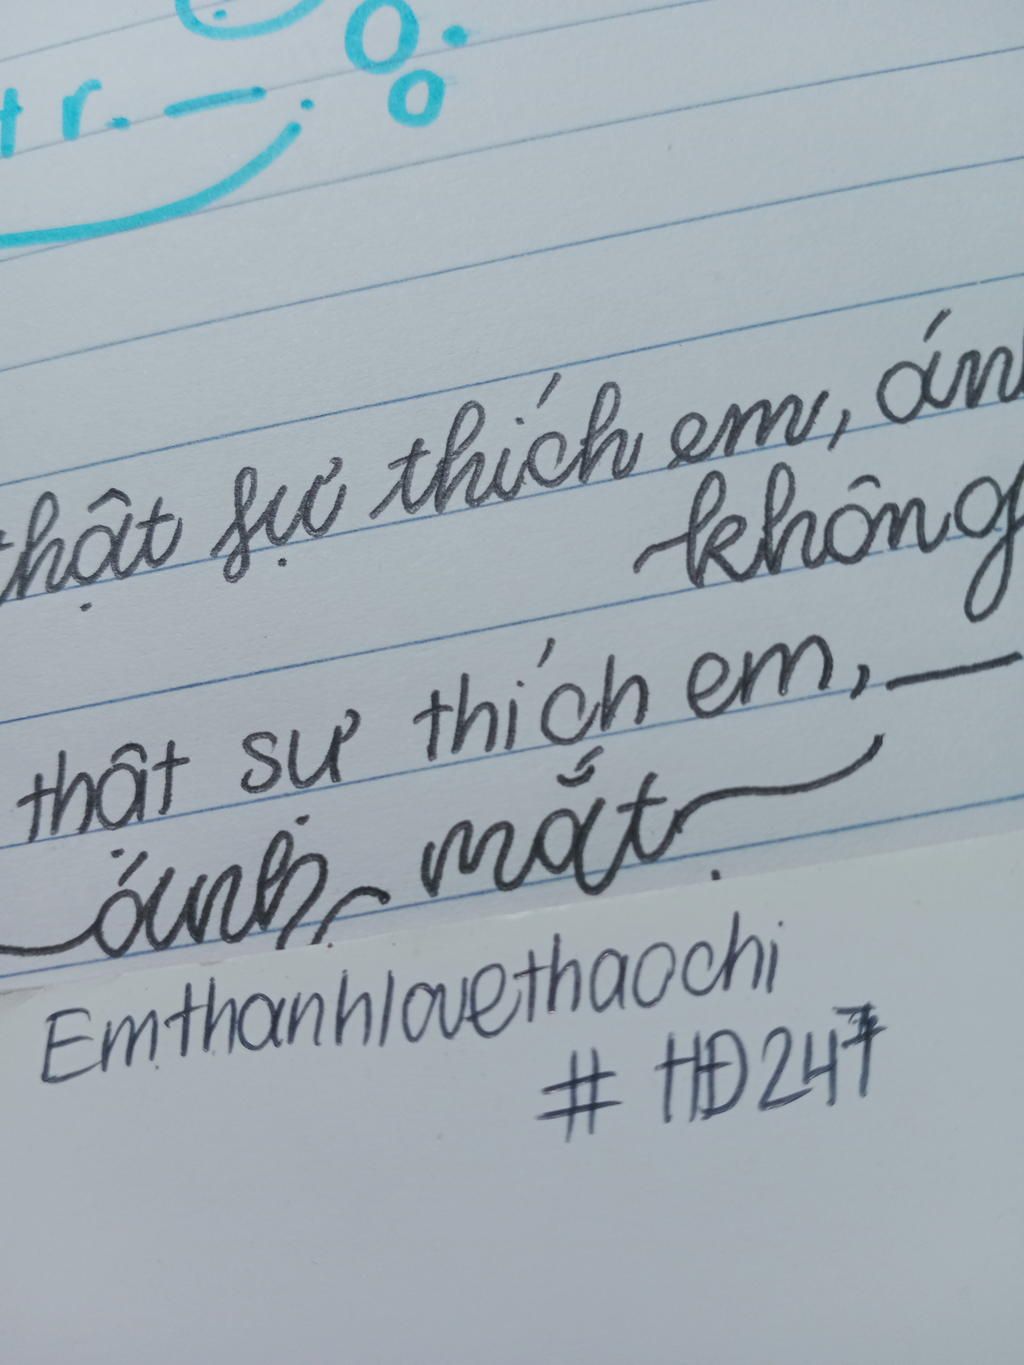 tr. — . O.
o
thật sự thích em, án
không
thật sự thích em, —
ánh mắt
Emthanhlovethaochi
# HĐ247